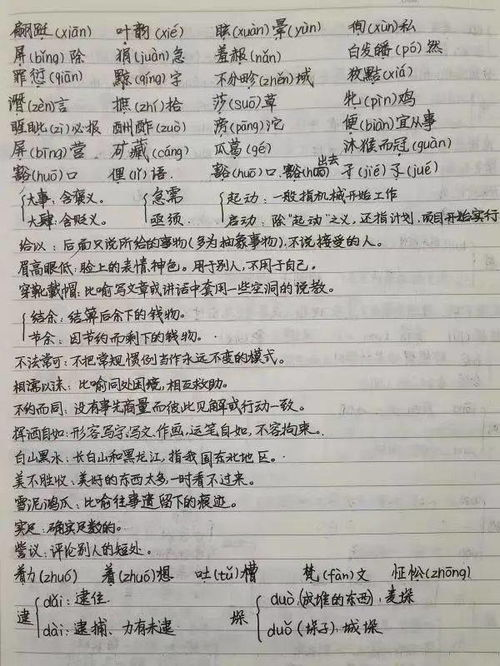 翩跹(xiān) 叶韵(xié) 眩(xuàn)晕(yùn) 徇(xùn)私
屏(bǐng)除 狷(juàn)急 羞赧(nǎn) 白发皤(pó)然
罪愆(qiān) 黥(qíng)字 不分畛(zhěn)域 狡黠(xiá)
谮(zèn)言 摭(zhí)拾 莎(suō)草 牝(pìn)鸡
睚眦(zì)必报 酬酢(zuò) 滂(pāng)沱 便(biàn)宜从事
屏(bīng)营 矿藏(cáng) 瓜葛(gé) 沐猴而冠(guàn)
豁(huō)口 俚(lǐ)语 豁(huō)口、豁(huō)出去 孑(jié)孓(jué)
大事:含褒义。 急需 起动:一般指机械开始工作
大肆:含贬义。 亟须 启动:除“起动”之义,还指计划、项目开始实行
给以:后面只说所给的事物(多为抽象事物),不说接受的人。
眉高眼低:脸上的表情、神色。用于别人,不用于自己。
穿靴戴帽:比喻写文章或讲话中套用一些空洞的说教。
结余:结算后余下的钱物。
节余:因节约而剩下的钱物。
不法常可:不把常规惯例当作永远不变的模式。
相濡以沫:比喻同处困境,相互救助。
不约而同:没有事先商量而彼此见解或行动一致。
挥洒自如:形容写字、写文、作画,运笔自如,不容拘束。
白山黑水:长白山和黑龙江,指我国东北地区。
美不胜收:美好的东西太多,一时看不过来。
雪泥鸿爪:比喻往事遗留下的痕迹。
实足:确实足数的。
訾议:评论别人的短处。
着力(zhuó) 着(zhuó)想 吐(tǔ)槽 梵(fàn)文 怔忪(zhōng)
逮 dǎi:逮住 垛 duò(成堆的东西):麦垛
dài:逮捕、力有未逮 duǒ(垛子):城垛